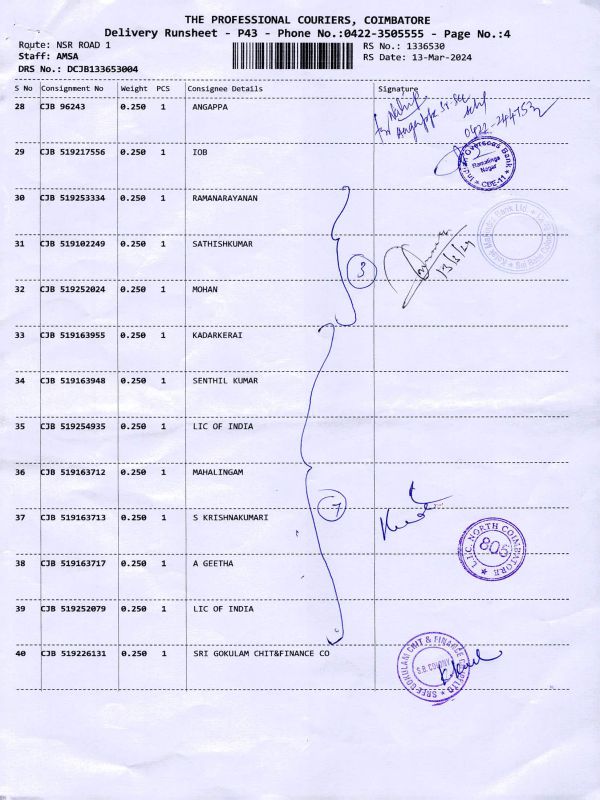 THE PROFESSIONAL COURIERS, COIMBATORE
Delivery Runsheet - P43 - Phone No.:0422-3505555 - Page No.:4
Route: NSR ROAD 1
RS No.: 1336530
Staff: AMSA
RS Date: 13-Mar-2024
DRS No.: DCJB133653004
S No Consignment No Weight PCS Consignee Details Signature
28 CJB 96243 0.250 1 ANGAPPA
for Angappa
0422-
29 CJB 519217556 0.250 1 IOB
Indian Overseas Bank
Ramalinga Nagar
CBE-11
30 CJB 519253334 0.250 1 RAMANARAYANAN
Kotak Mahindra Bank Ltd.
31 CJB 519102249 0.250 1 SATHISHKUMAR
3
13/3/24
32 CJB 519252024 0.250 1 MOHAN
33 CJB 519163955 0.250 1 KADARKERAI
34 CJB 519163948 0.250 1 SENTHIL KUMAR
35 CJB 519254935 0.250 1 LIC OF INDIA
36 CJB 519163712 0.250 1 MAHALINGAM
7
37 CJB 519163713 0.250 1 S KRISHNAKUMARI
L.I.C. NORTH COIMBATORE
805
38 CJB 519163717 0.250 1 A GEETHA
39 CJB 519252079 0.250 1 LIC OF INDIA
40 CJB 519226131 0.250 1 SRI GOKULAM CHIT&FINANCE CO
SREE GOKULAM CHIT & FINANCE CO. (P) LTD
S.B. COLONY